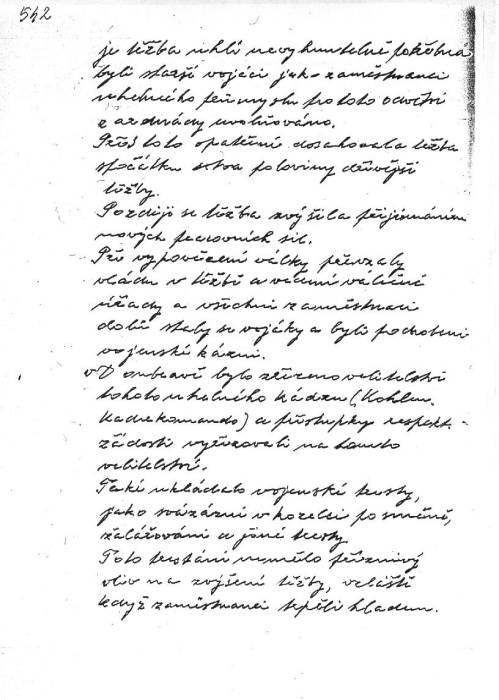 542
je těžba uhlí nevyhnutelně potřebná
byli starší vojáci jako zaměstnanci
uhelného průmyslu pro toto odvětví
z armády uvolňováno.
Přes toto opatření dosahovala těžba
zpočátku sotva poloviny dřívější
těžby.
Později se těžba zvýšila přijímáním
nových pracovních sil.
Při vypovězení války převzaly
vládu v těžbě a vedení válečné
úřady a všichni zaměstnanci
dolů staly se vojáky a byli podrobeni
vojenské kázni.
V Doubravě bylo zřízeno velitelství
tohoto uhelného kádru (Kohlen-
kaderkomando) a přestupky respekt.
žádosti vyřizovali na tomto
velitelství.
Také ukládalo vojenské tresty,
jako svázání v kozelec po směně,
žalářování a jiné tresty
Toto trestání nemělo příznivý
vliv na zvýšení těžby, zvláště
když zaměstnanci trpěli hladem.